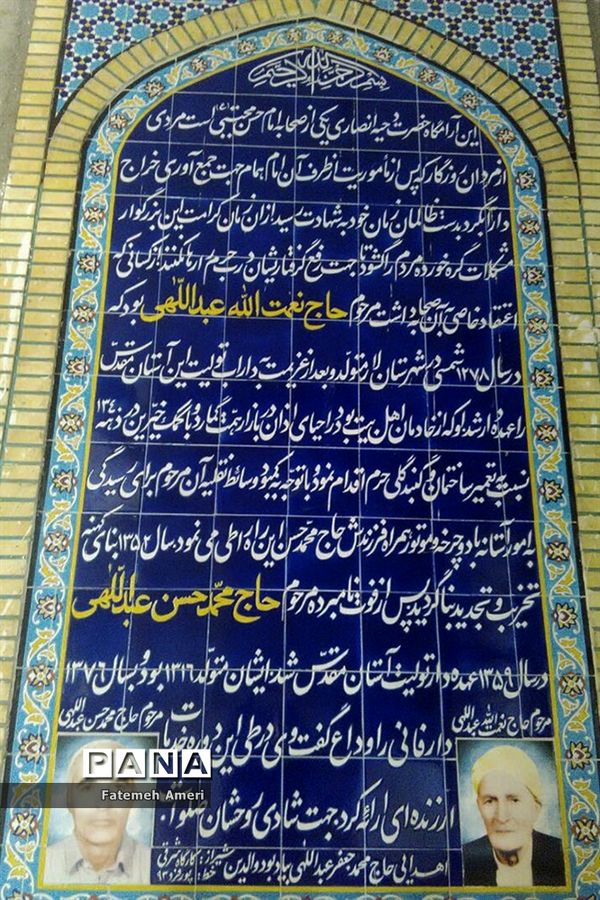 بسم الله الرحمن الرحیم
این آرامگاه حضرت دحیه انصاری یکی از صحابه امام حسن مجتبی (ع) است مردی
از مردان روزگار که پس از مأموریت از طرف آن امام همام جهت جمع آوری خراج
دارابگرد بدست ظالمان زمان خود به شهادت رسید از آن زمان کرامت این بزرگوار
مشکلات گره خورده مردم را گشود تا جهت رفع گرفتاریشان در حرم از کسانی که
اعتقاد خاصی به آن صحابه داشت مرحوم حاج نعمت الله عبداللهی بود که
در سال ۱۲۷۸ شمسی در شهرستان لار متولد و بعد از عزیمت به داراب تولیت این آستان مقدس
را عهده دار شد او که از خادمان اهل بیت بود در احیای اذان در بازار همت گمارد و با کمک خیرین در دهه ۱۳۴۰
نسبت به تعمیر ساختمان و گنبد گلی حرم اقدام نمود با توجه به کمبود وسائط نقلیه آن مرحوم برای رسیدگی
به امور آستانه با دوچرخه و موتور همراه فرزندش حاج محمد حسن این راه را طی می نمود سال ۱۳۵۲ بنای کهنه
تخریب و تجدید بنا گردید پس از فوت نامبرده مرحوم حاج محمد حسن عبداللهی
در سال ۱۳۵۹ عهده دار تولیت آستان مقدس شد ایشان متولد ۱۳۱۶ بود و بسال ۱۳۷۶
مرحوم حاج نعمت الله عبداللهی
دار فانی را وداع گفت وی در طی این دوره خدمات
مرحوم حاج محمد حسن عبداللهی
ارزنده ای ارائه کرد جهت شادی روحشان صلوات
اهدائی حاج محمد جعفر عبداللهی بیاد بود والدین
شیراز: کارگاه شرقی
خط: پورفرد ۹۳
PANA
Fatemeh Ameri